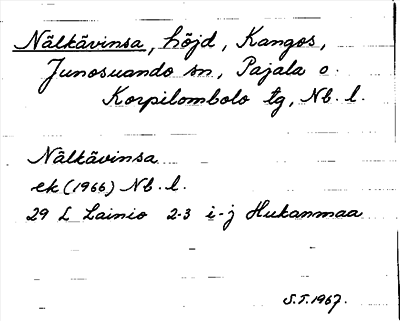 Nälkävinsa, höjd, Kangos,
Junosuando sn, Pajala o.
Korpilombolo tg, Nb. l.
Nälkävinsa
ek (1966) Nb. l.
29 L Lainio 2-3 i-j Hukanmaa
S.T. 1967.